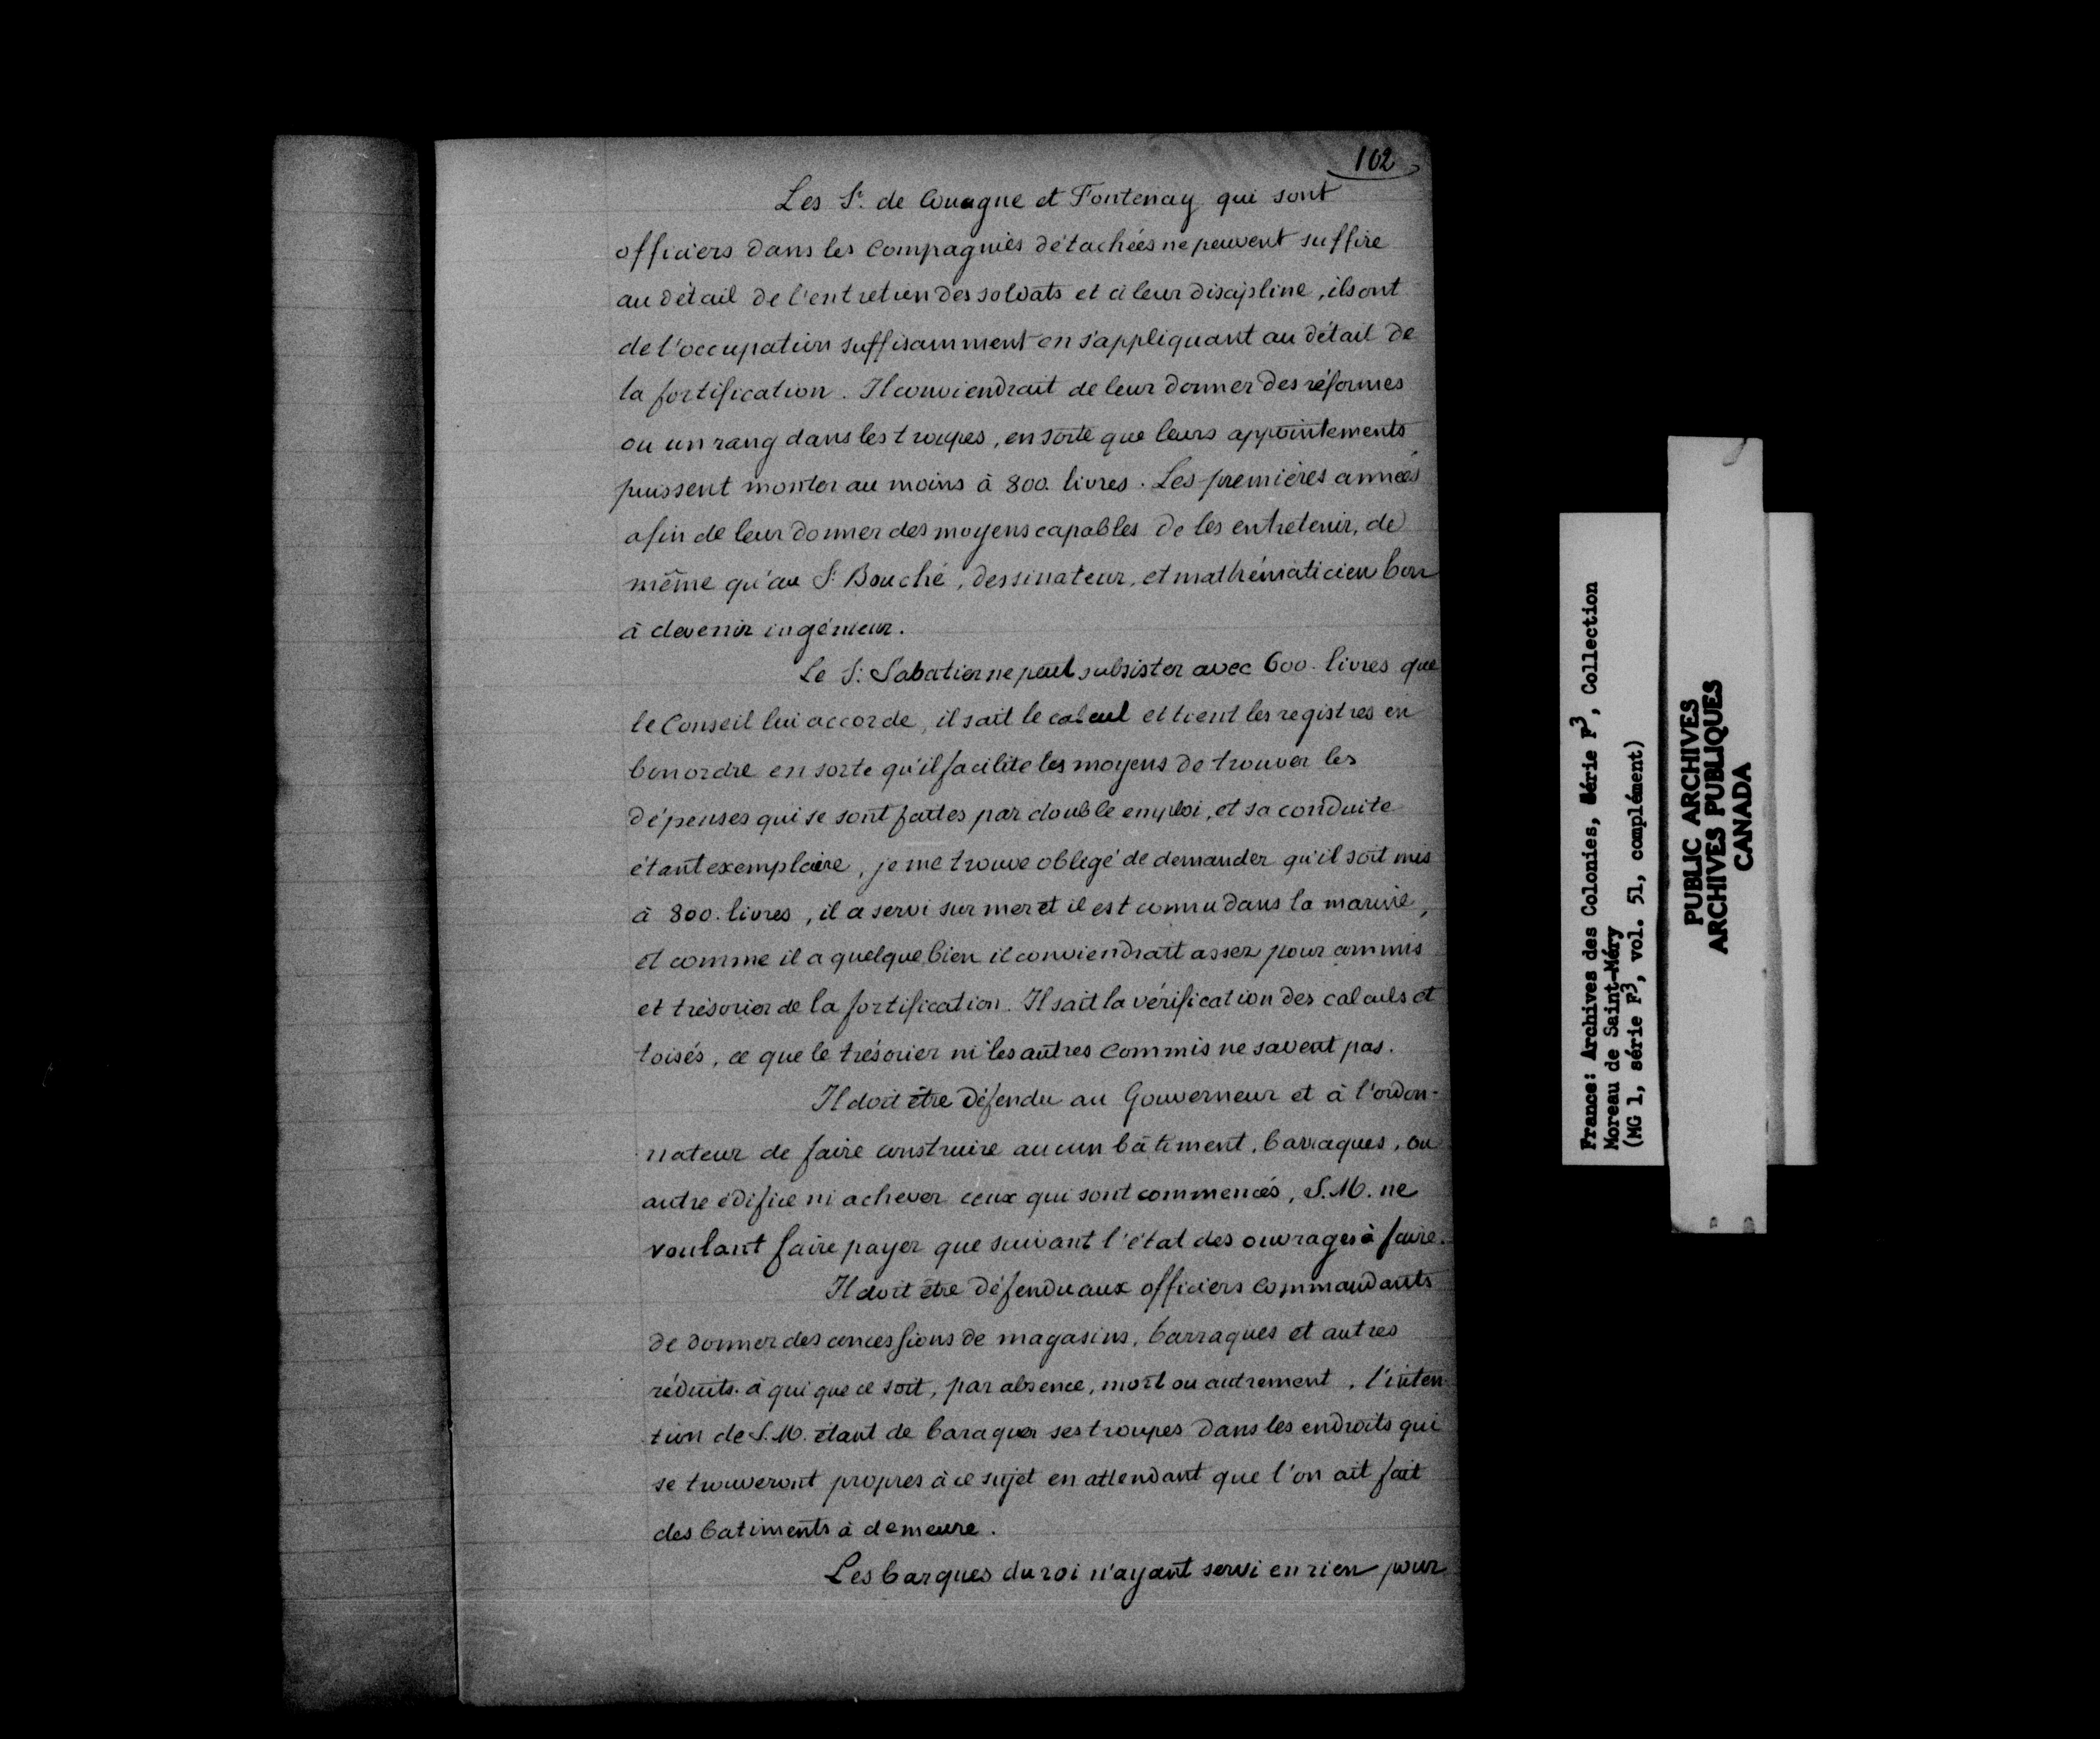 102
Les Sr. de Couagne et Fontenay qui sont
officiers dans les compagnies détachées ne peuvent suffire
au détail de l'entretien des soldats et à leur discipline, ils ont
de l'occupation suffisamment en s'appliquant au détail de
la fortification. Il conviendrait de leur donner des réformes
ou un rang dans les troupes, en sorte que leurs appointements
puissent monter au moins à 800. livres. Les premières années
afin de leur donner des moyens capables de les entretenir, de
même qu'au Sr. Bouché, dessinateur, et mathématicien bon
à devenir ingénieur.
Le Sr. Sabatier ne peut subsister avec 600. livres que
le Conseil lui accorde, il sait le calcul et tient les registres en
bon ordre en sorte qu'il facilite les moyens de trouver les
dépenses qui se sont faites par double emploi, et sa conduite
étant exemplaire, je me trouve obligé de demander qu'il soit mis
à 800. livres, il a servi sur mer et il est connu dans la marine,
et comme il a quelque bien il conviendrait assez pour commis
et trésorier de la fortification. Il sait la vérification des calculs et
toisés, ce que le trésorier ni les autres commis ne savent pas.
Il doit être défendu au Gouverneur et à l'ordon-
nateur de faire construire aucun bâtiment, barraques, ou
autre édifice ni achever ceux qui sont commencés, S.M. ne
voulant faire payer que suivant l'état des ouvrages à faire.
Il doit être défendu aux officiers commandants
de donner des concessions de magasins, barraques et autres
réduits à qui que ce soit, par absence, mort ou autrement, l'inten-
tion de S.M. étant de baraquer ses troupes dans les endroits qui
se trouveront propres à ce sujet en attendant que l'on ait fait
des batiments à demeure.
Les barques du roi n'ayant servi en rien pour
France: Archives des Colonies, Série F3, Collection
Moreau de Saint-Méry
(MG 1, série F3, vol. 51, complément)
PUBLIC ARCHIVES
ARCHIVES PUBLIQUES
CANADA